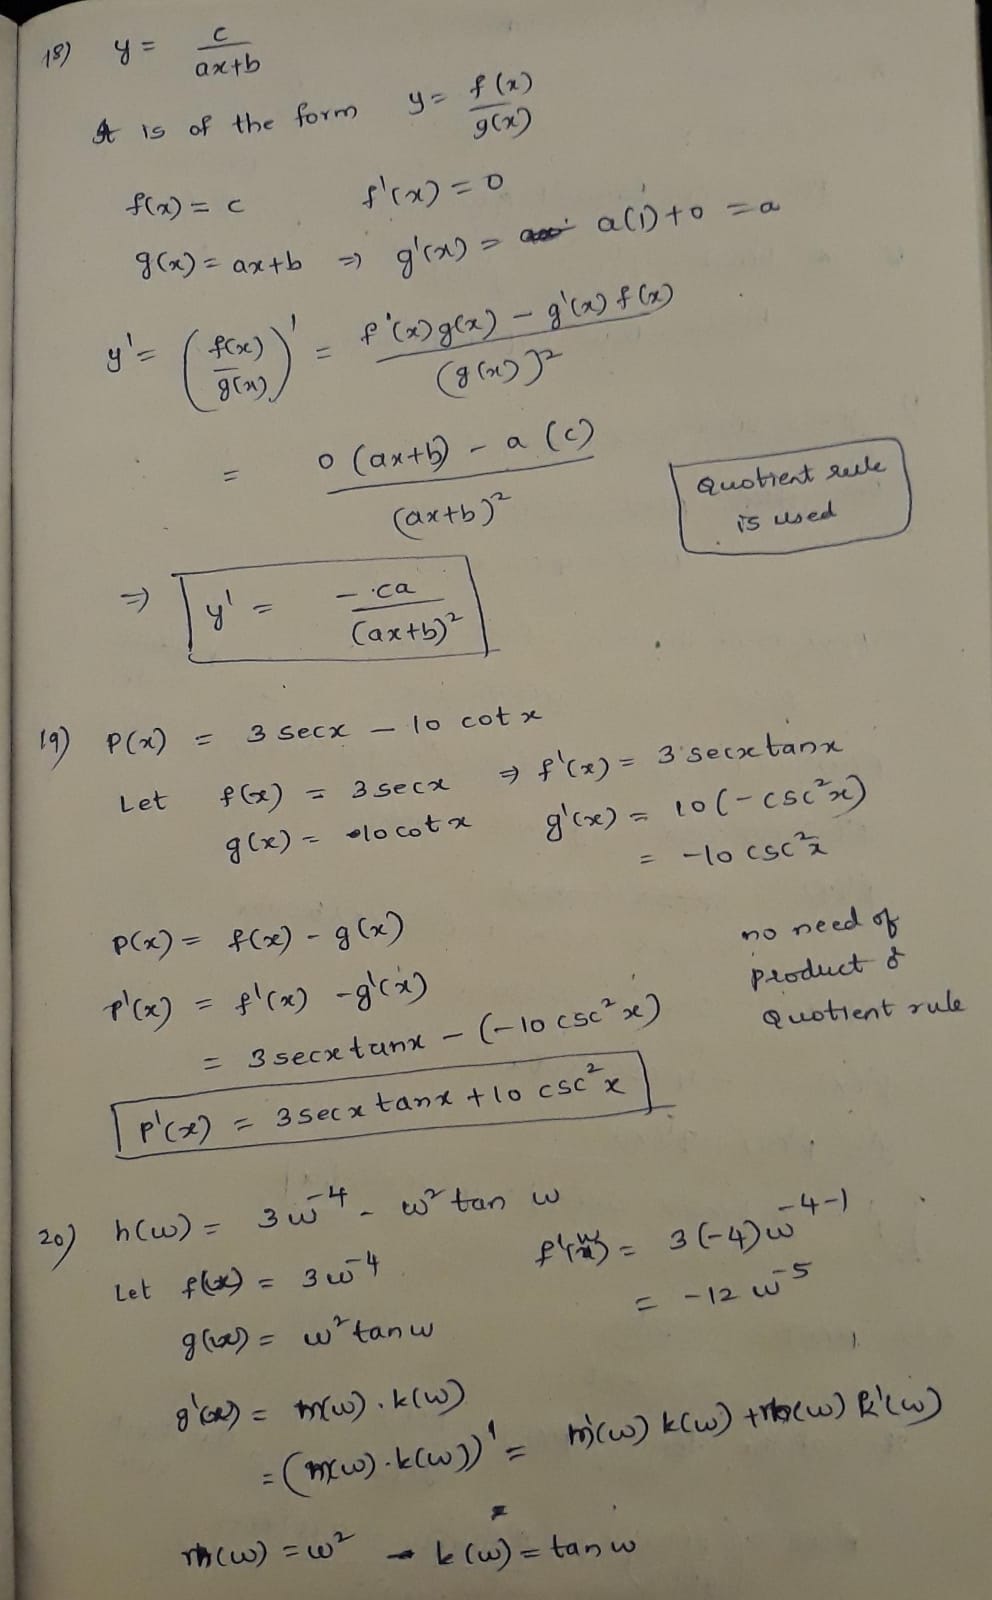 18) y = c/(ax+b)
It is of the form y = f(x)/g(x)
f(x) = c f'(x) = 0
g(x) = ax+b ⇒ g'(x) = a(1)+0 = a
y' = (f(x)/g(x))' = (f'(x)g(x) - g'(x)f(x))/(g(x))²
= (0(ax+b) - a(c))/(ax+b)²
Quotient rule
is used
⇒ y' = -ca/(ax+b)²
19) P(x) = 3 secx - 10 cotx
Let f(x) = 3secx ⇒ f'(x) = 3secxtanx
g(x) = 10cotx g'(x) = 10(-csc²x)
= -10 csc²x
P(x) = f(x) - g(x)
P'(x) = f'(x) - g'(x)
= 3secxtanx - (-10csc²x)
no need of
product &
Quotient rule
P'(x) = 3secxtanx + 10csc²x
20) h(w) = 3w⁻⁴ - w² tan w
Let f(w) = 3w⁻⁴ f'(w) = 3(-4)w⁻⁴⁻¹
= -12w⁻⁵
g(w) = w² tan w
g'(w) = m(w).k(w)
= (m(w).k(w))' = m'(w)k(w)+m(w)k'(w)
m(w) = w² k(w) = tan w